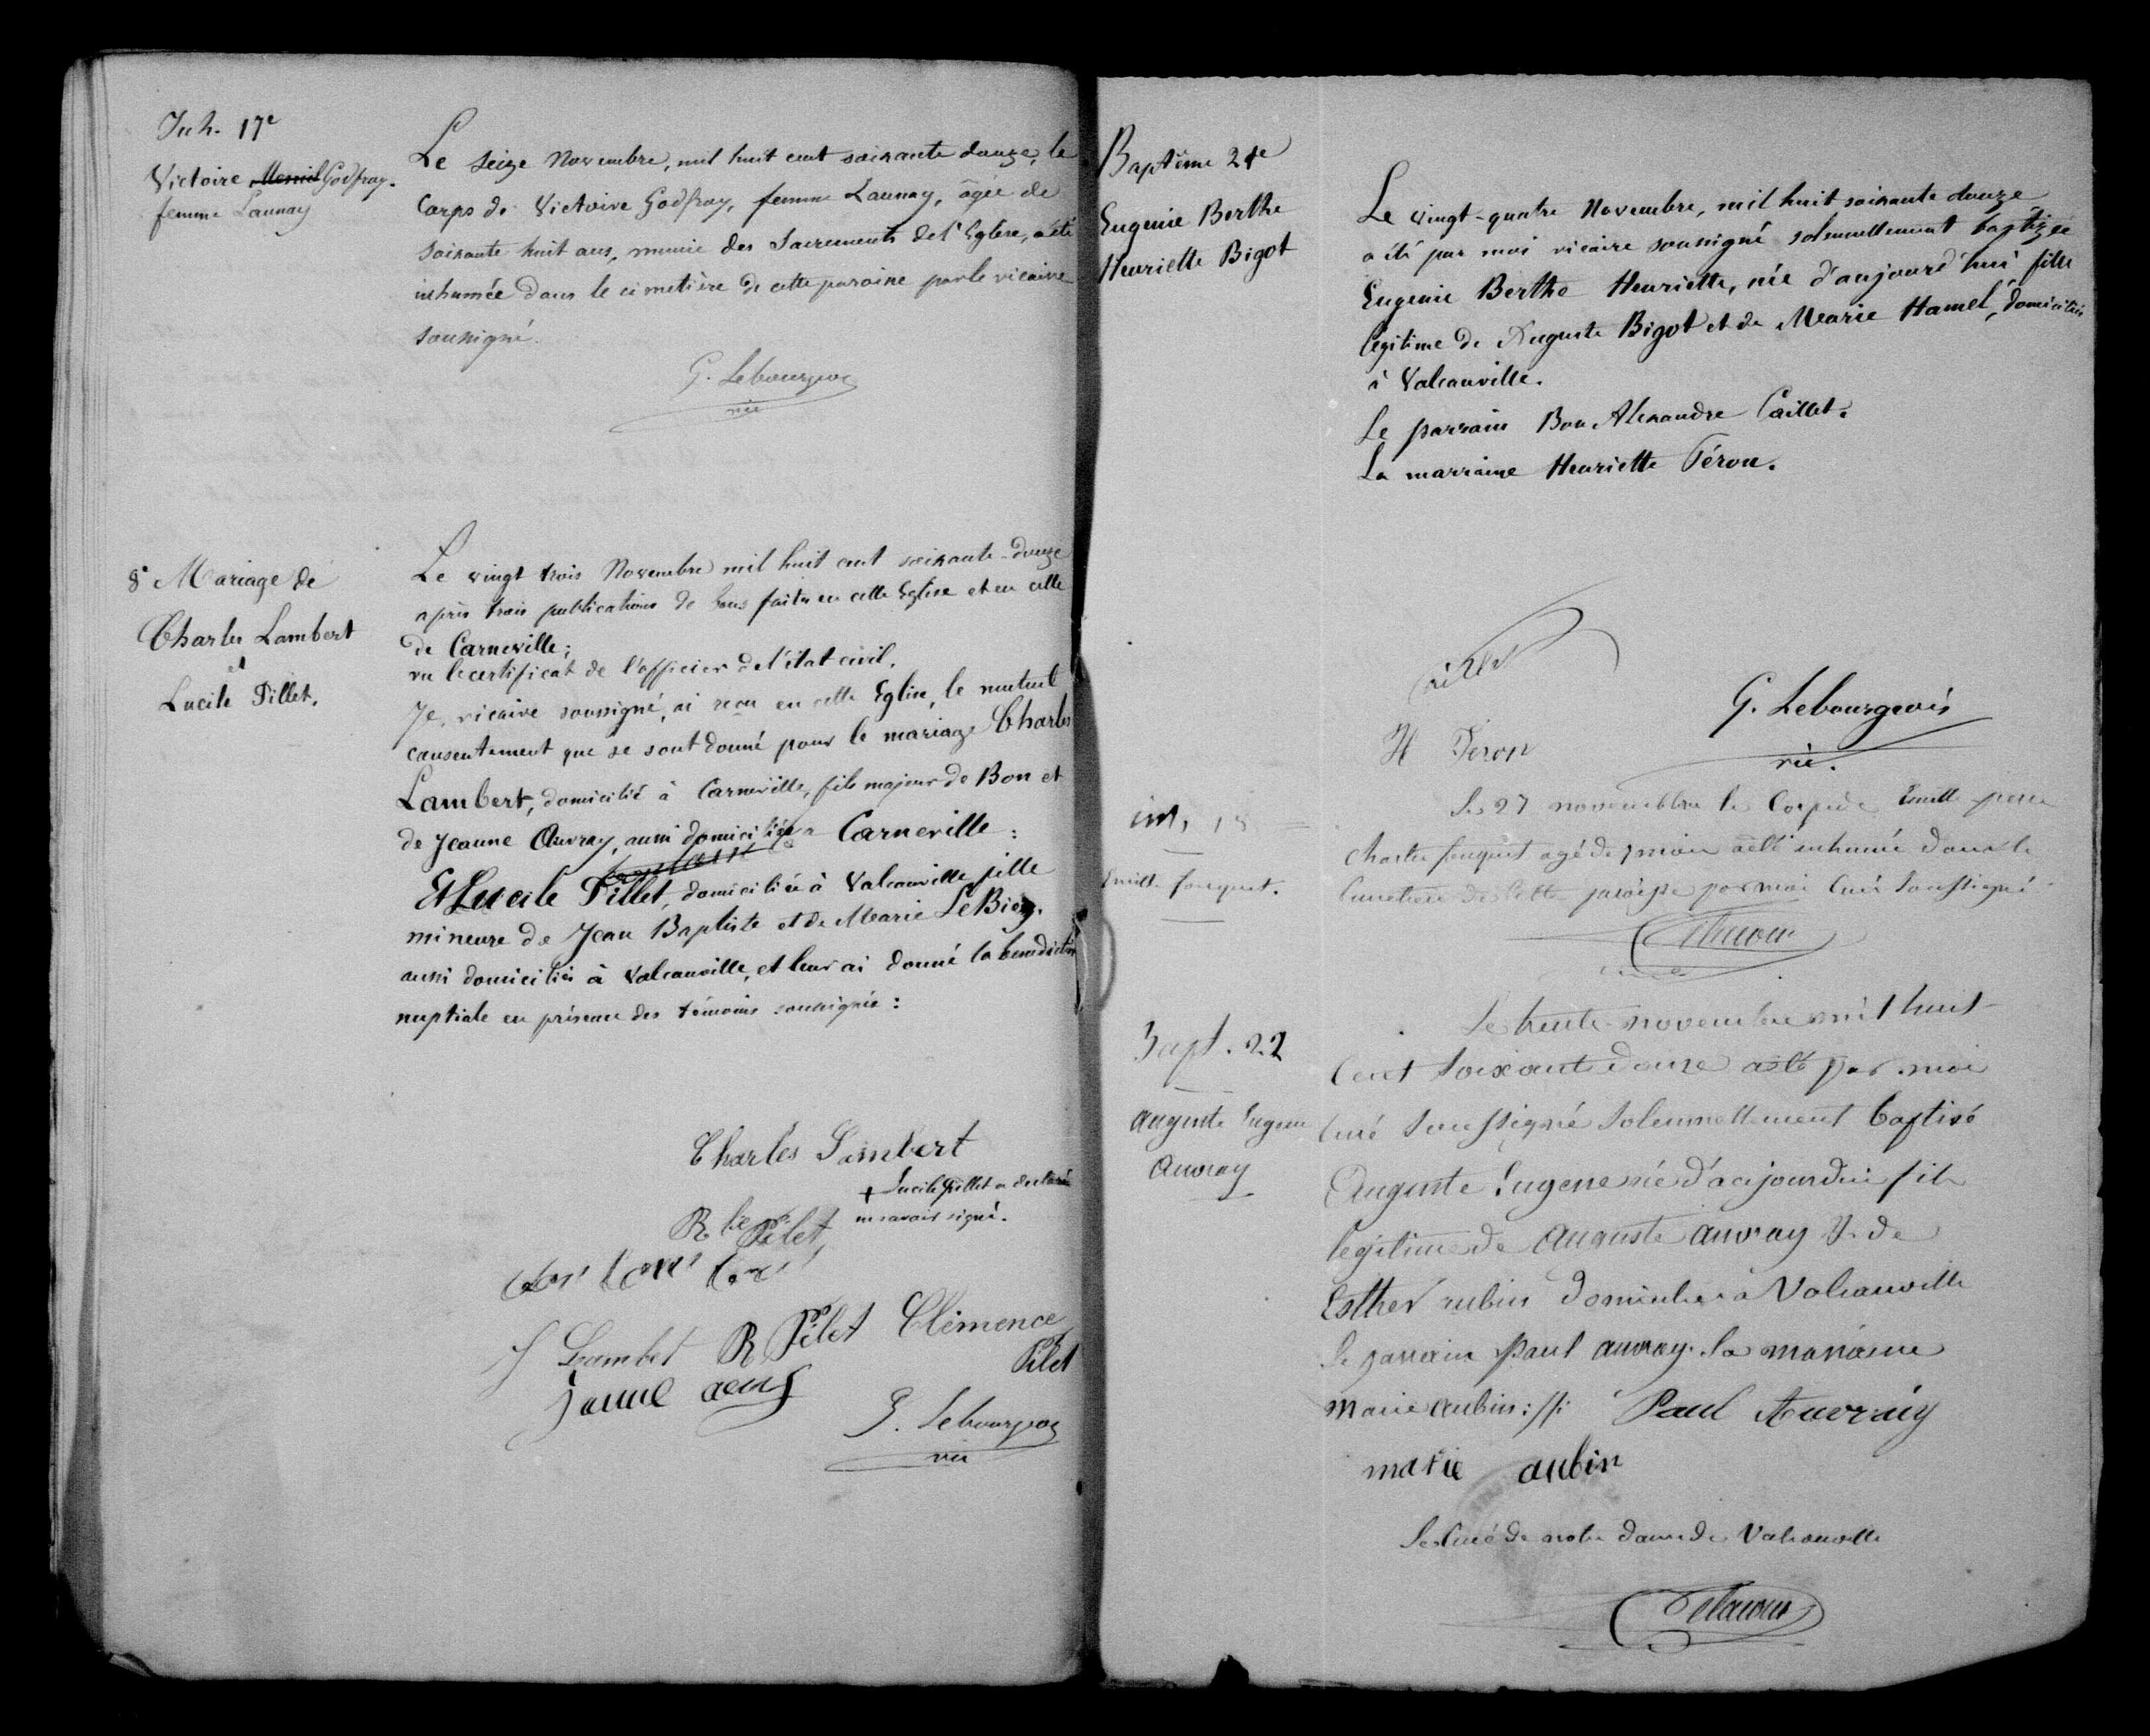 Inh. 17e
Victoire Godfray.
femme Launay
Le seize Novembre, mil huit cent soixante douze, le
corps de Victoire Godfray, femme Launay, âgée de
soixante huit ans, munie des Sacrements de l'Eglise, a été
inhumée dans le cimetière de cette paroisse par le vicaire
soussigné.
G. Lebourgeois
vic
8e Mariage de
Charles Lambert
et
Lucile Pillet.
Le vingt trois Novembre mil huit cent soixante-douze
après trois publications de bans faites en cette Eglise et en celle
de Carneville;
vu le certificat de l'officier de l'état civil.
Je, vicaire soussigné, ai reçu en cette Eglise, le mutuel
consentement que se sont donné pour le mariage Charles
Lambert, domicilié à Carneville, fils majeur de Bon et
de Jeanne Auvray, aussi domiciliés à Carneville:
Et Lucile Pillet, domiciliée à Valcanville fille
mineure de Jean Baptiste et de Marie Le Biez.
aussi domiciliés à Valcanville, et leur ai donné la bénédiction
nuptiale en présence des témoins soussignés:
Charles Lambert
+ Lucile Pillet a déclaré
ne savoir signé.
Pilet
Lambet R Pilet Clémence
Pilet
G. Lebourgeois
vic
Baptême 21e
Eugenie Berthe
Henriette Bigot
Le vingt-quatre Novembre, mil huit soixante douze
a été par moi vicaire soussigné solennellement baptizée
Eugenie Berthe Henriette, née d'aujourd'hui fille
légitime de Auguste Bigot et de Marie Hamel, domiciliés
à Valcanville.
Le parrain Bon Alexandre Caillet.
La marraine Henriette Féron.
G. Lebourgeois
H Feron
vic.
inh. 18
Emille fouquet.
Le 27 novembbre le Corps de Emille pierre
Charles fouquet agé de 7 mois a été inhumé dans le
Cimetiere de Cette paroisse par moi Curé Soussigné
Bapt. 22
Auguste Eugene
Auvray
Le trente novembre mil huit
Cent Soixante douze a été par moi
Curé Soussigné Solennellement Baptisé
Auguste Eugene né d'aujourdui fils
legitime de Auguste Auvray & de
Esther aubin domiciliés à Valcanville
Le parrain Paul Auvray. la marraine
Marie aubin: Paul Auvray
marie aubin
Le Curé de notre dame de Valcanville